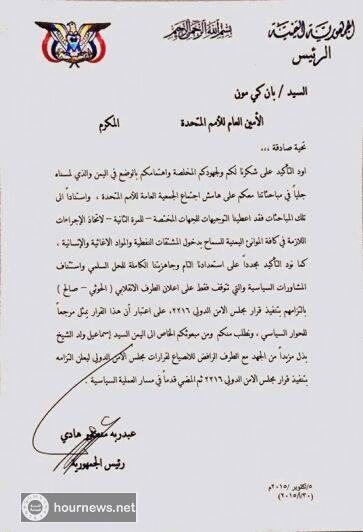 الجمهورية اليمنية
الرئيس
بسم الله الرحمن الرحيم
السيد / بان كي مون
الأمين العام للأمم المتحدة المكرم
تحية صادقة ،،،
اود التأكيد على شكرنا لكم ولجهودكم المخلصة واهتمامكم بالوضع في اليمن والذي لمسناه
جلياً في مباحثاتنا معكم على هامش اجتماع الجمعية العامة للأمم المتحدة ، واستناداً الى
تلك المباحثات فقد اعطينا التوجيهات للجهات المختصة – للمرة الثانية – لاتخاذ الإجراءات
اللازمة في كافة الموانئ اليمنية للسماح بدخول المشتقات النفطية والمواد الاغاثية والإنسانية ،
كما نود التأكيد مجدداً على استعدادنا التام وجاهزيتنا الكاملة للحل السلمي واستئناف
المشاورات السياسية والتي تتوقف فقط على اعلان الطرف الانقلابي ( الحوثي – صالح )
بالتزامهم بتنفيذ قرار مجلس الامن الدولي ٢٢١٦، على اعتبار أن هذا القرار يمثل مرجعاً
للحوار السياسي ، ونطلب منكم ومن مبعوثكم الخاص الى اليمن السيد إسماعيل ولد الشيخ
بذل مزيداً من الجهد مع الطرف الرافض للانصياع لقرارات مجلس الامن الدولي ليعلن التزامه
بتنفيذ قرار مجلس الامن الدولي ٢٢١٦ ثم المضي قدماً في مسار العملية السياسية .
عبدربه منصور هادي
رئيس الجمهورية
٥/أكتوبر /٢٠١٥م
hournews.net